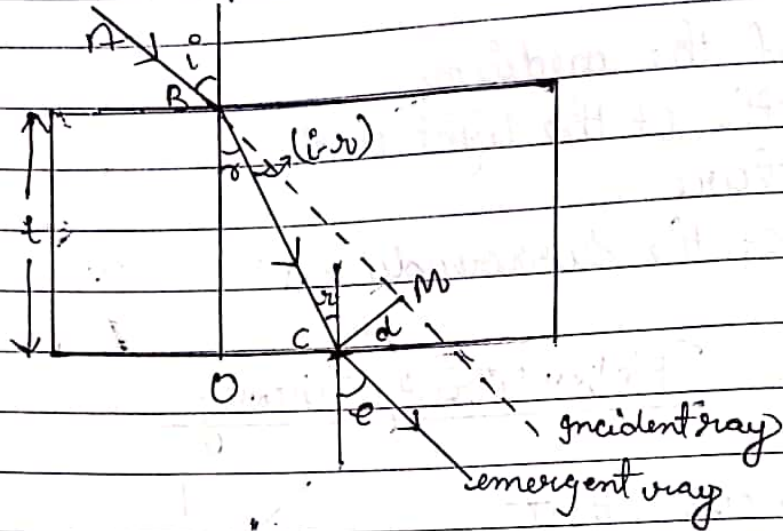 A
i
B
(i-r)
r
t
r
M
C
d
O
e
incident ray
emergent ray